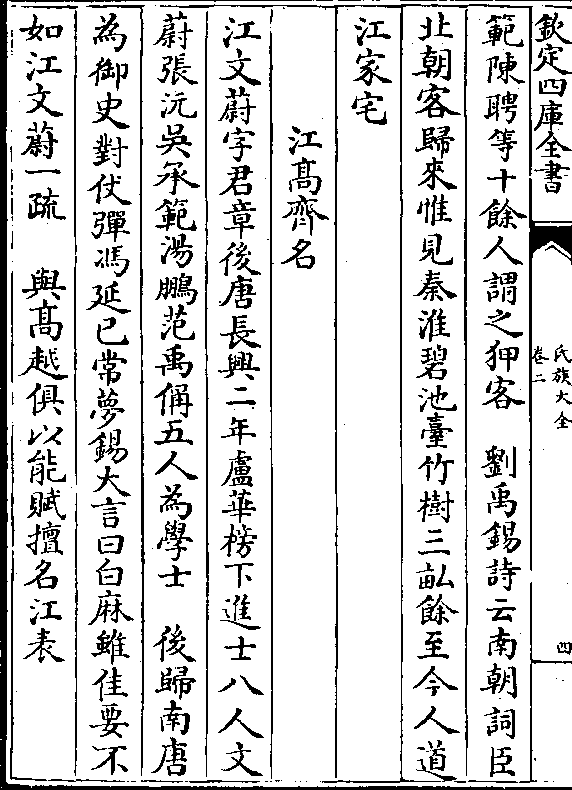 欽定四庫全書
氏族大全
卷二
四
範陳聘等十餘人謂之狎客　劉禹錫詩云南朝詞臣
北朝客歸來惟見秦淮碧池臺竹樹三畝餘至今人道
江家宅
江髙齊名
江文蔚字君章後唐長興二年盧華榜下進士八人文
蔚張沆吳承範湯鵬范禹偁五人為學士　後歸南唐
為御史對仗彈馮延已常夢錫大言曰白麻雖佳要不
如江文蔚一疏　與髙越俱以能賦擅名江表